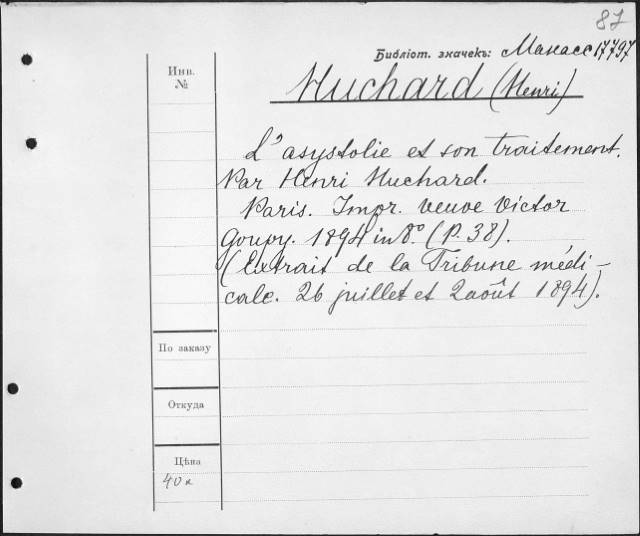 87
Библіот. значекъ: Манасс 17797
Инв.
№
Huchard (Henri)
L'asystolie et son traitement.
Par Henri Huchard.
Paris. Impr. veuve Victor
Goupy. 1894 in 8º. (P. 38).
(Extrait de la Tribune médi-
cale. 26 juillet et 2 août 1894).
По заказу
Откуда
Цѣна
40 к